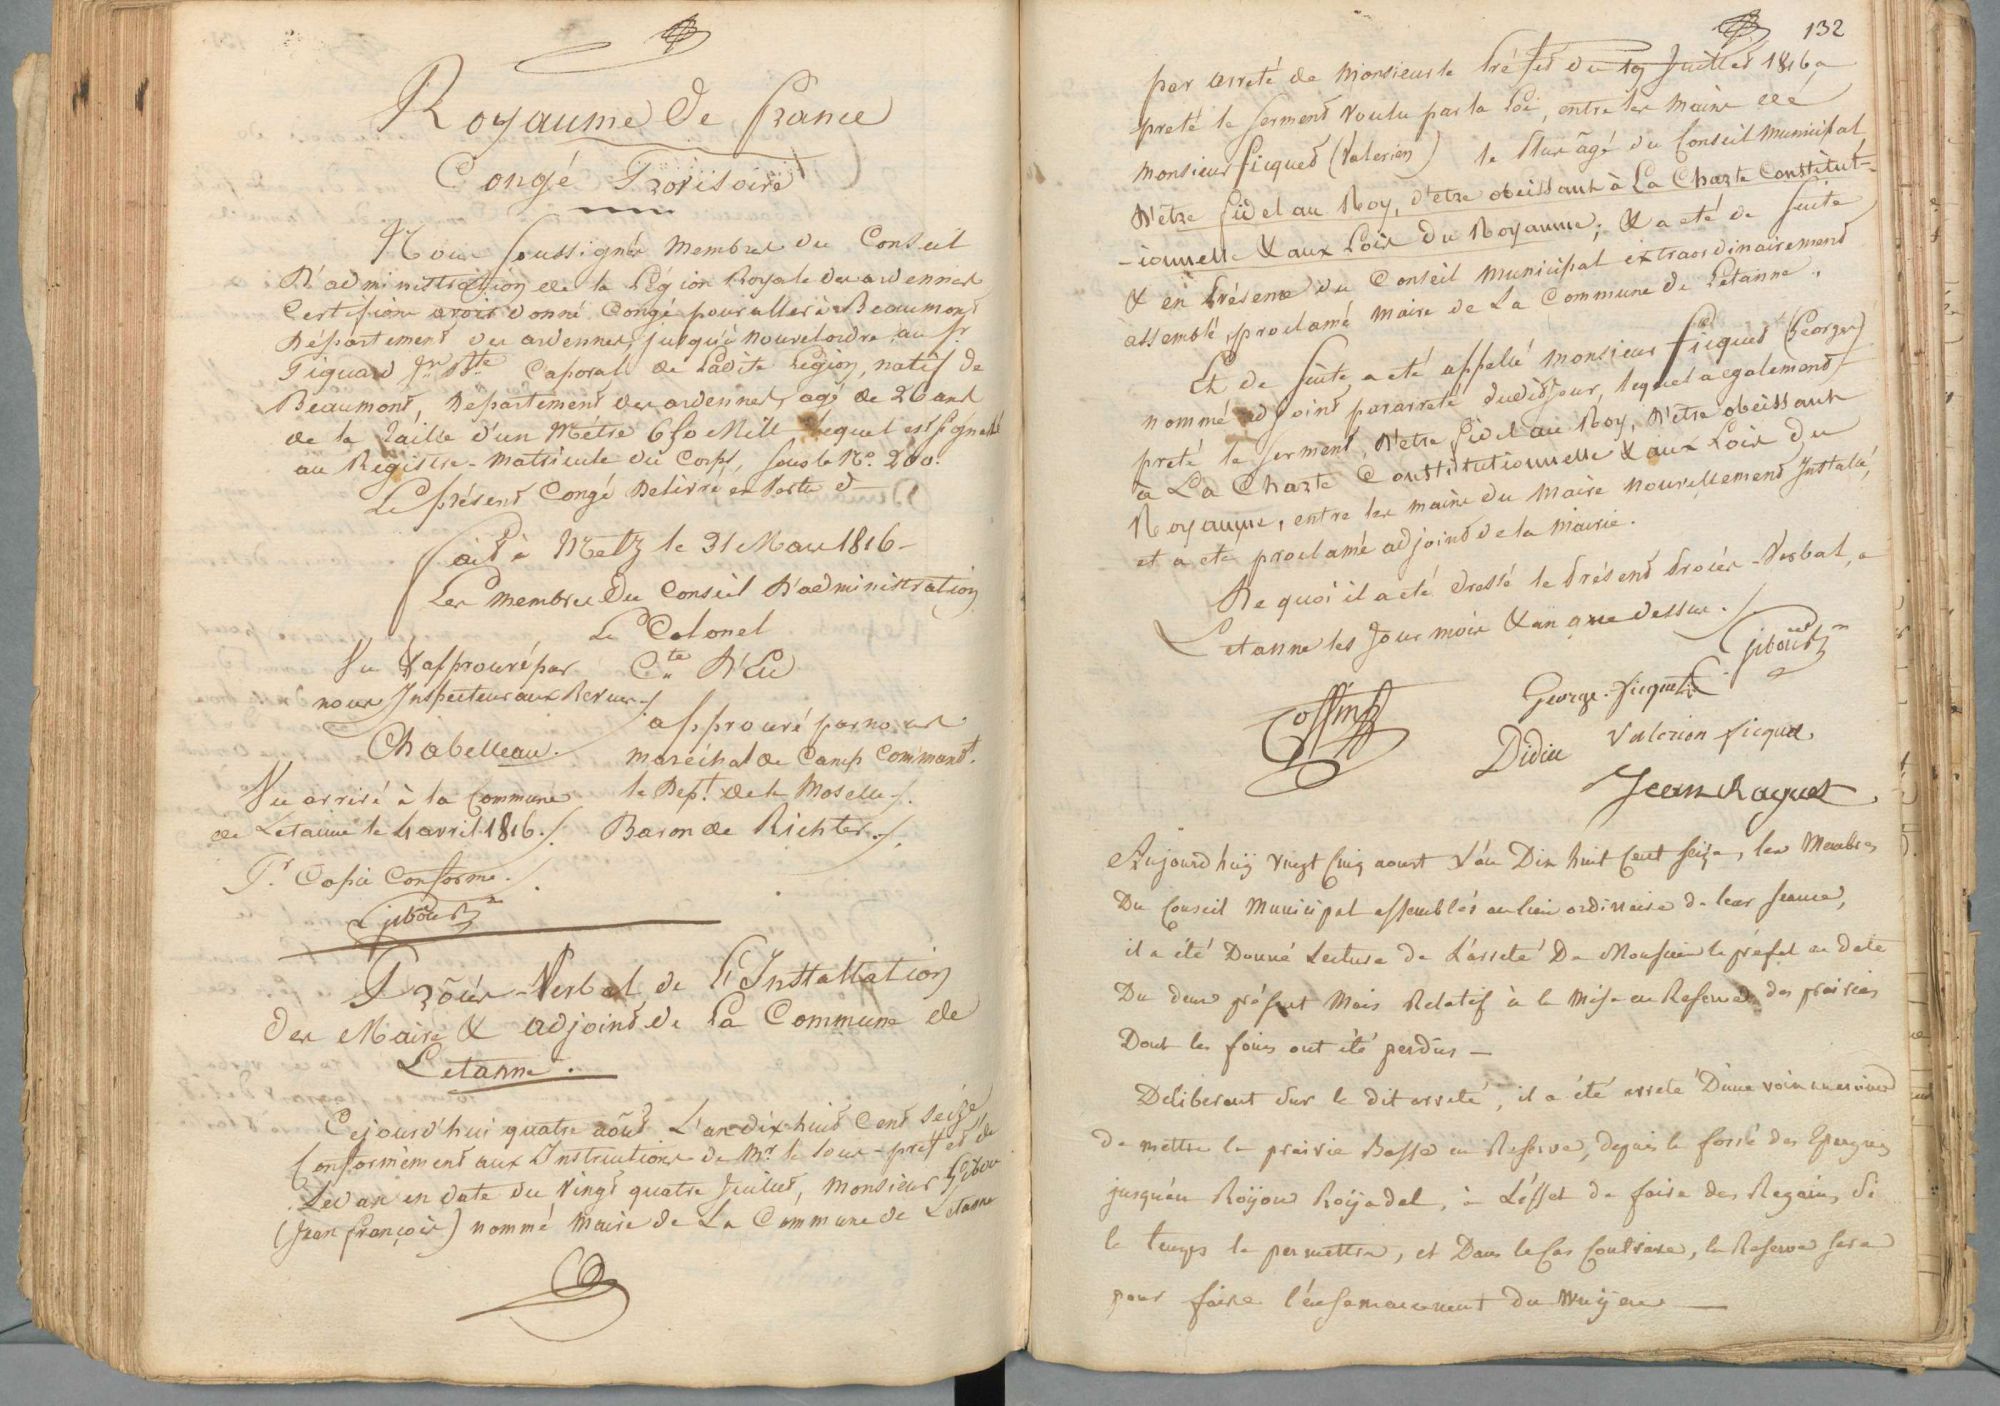 Royaume de france
Congé Provisoire
Nous soussignés membres du Conseil
D'administration de la Légion Royale des ardennes
Certifions avoir donné Congé pour aller à Beaumont
Département des ardennes, jusqu'à nouvel ordre au Sr.
Piquard Jn. Bte. Caporal de Ladite Légion, natif de
Beaumont, Département des ardennes, agé de 26 ans
de la Taille d'un Métre 650 Mill. lequel est signalé
au Registre-Matricule du Corps, sous le No. 200.
Le présent Congé Délivré en
fait à Metz le 31 Mars 1816
Les membres Du Conseil D'administration
Le Colonel
Cte D'Lu
Vu & approuvé par
nous Inspecteur aux Revues
Chabelleau
approuvé par nous
maréchal de Camp Command.t
le Dept. de la Moselle
Baron de Richter
Vu arrivé à la Commune
de Letanne le 4 avril 1816
Pr. Copie Conforme.
Gibour
Procès-Verbal de L'Installation
des Maire & adjoint de La Commune de
Letanne.
Cejourd'hui quatre août L'an dix huit Cent Seize
Conformément aux Instructions de Mr. le sous-prefet de
Sedan en date du vingt quatre Juillet, Monsieur Gibour
(Jean françois) nommé Maire de La Commune de Letanne
132
par arreté de Monsieur le Préfet du 19 Juillet 1816, a
preté le serment voulu par la Loi, entre les mains de
Monsieur ficquet (Valerien) le Plus âgé du Conseil municipal,
D'être fidel au Roy, d'être obéissant à La Charte Constitut-
-ionnelle & aux Loix du Royaume; & a été de suite
& en Présence du Conseil municipal extraordinairement
assemblé, proclamé maire de La Commune de Letanne.
Et de suite, a été appellé monsieur ficquet (George)
nommé adjoint par arreté dudit jour, lequel a egalement
preté le serment, D'etre fidel au Roy, D'etre obéissant
à La Charte Constitutionnelle & aux Loix du
Royaume, entre les mains du Maire nouvellement Installé,
et a été proclamé adjoint de la Mairie.
De quoi il a été dressé le Présent Procès-Verbal, a
Letanne les Jour mois & an que dessus.
Gibour
George. ficquet
Coffin
Valerien ficquet
Didier
Jean Raguet
Aujourd'huÿ vingt Cinq aoust L'an Dix huit Cent seize, les Membres
Du Conseil Municipal assemblés au lieu ordinaire de leur seance,
il a été Donné Lecture de L'arreté De Monsieur le préfet en date
Du deux présent Mois Relatif à la Mise en Reserve des prairies
Dont les foins ont été perdus —
Deliberant sur le dit arreté, il a été arreté D'une voix unanime
de mettre la prairie Basse en Reserve, depuis le fossé des
jusqu'au Royon Royadel, à L'effet de faire des Regains, si
le temps le permettra, et Dans le Cas Contraire, la Reserve sera
pour faire l'ensemencement du